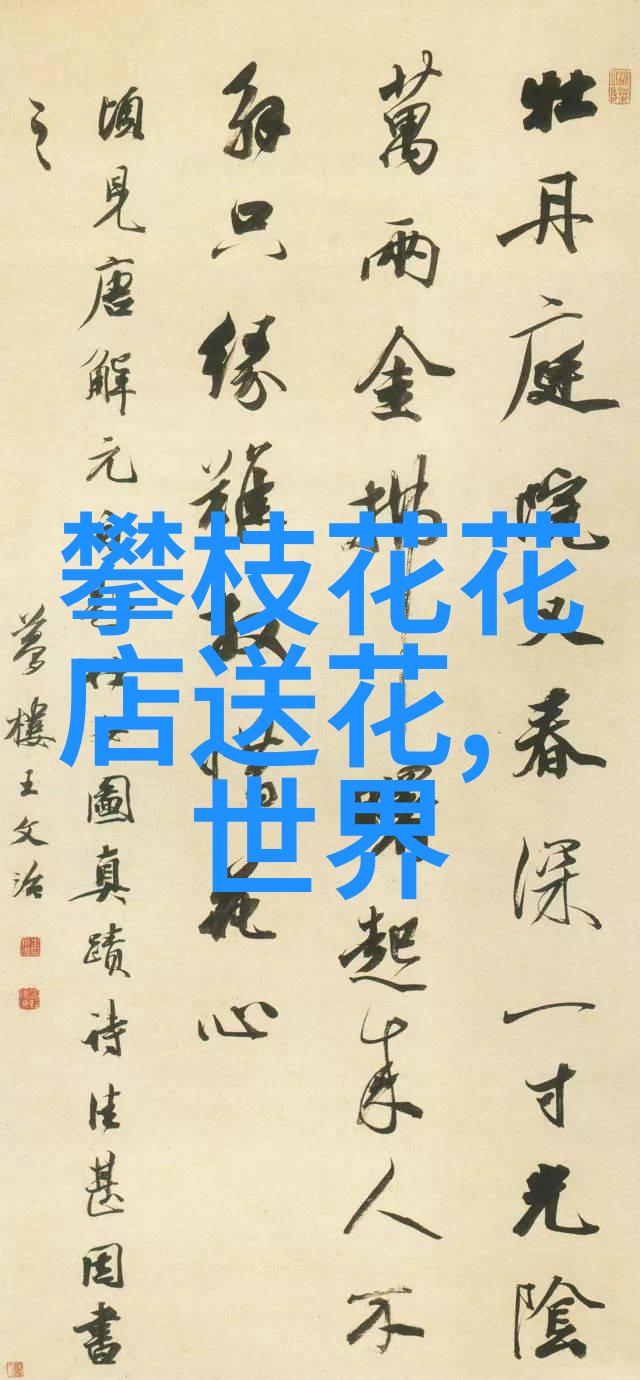 牡丹庭院又春深一寸光陰
萬兩金拂曙起來人不
解只緣難放惜花心
頃見唐解元圖真蹟詩佳甚因書
之
夢樓王文治
攀枝花花
店送花,
世界